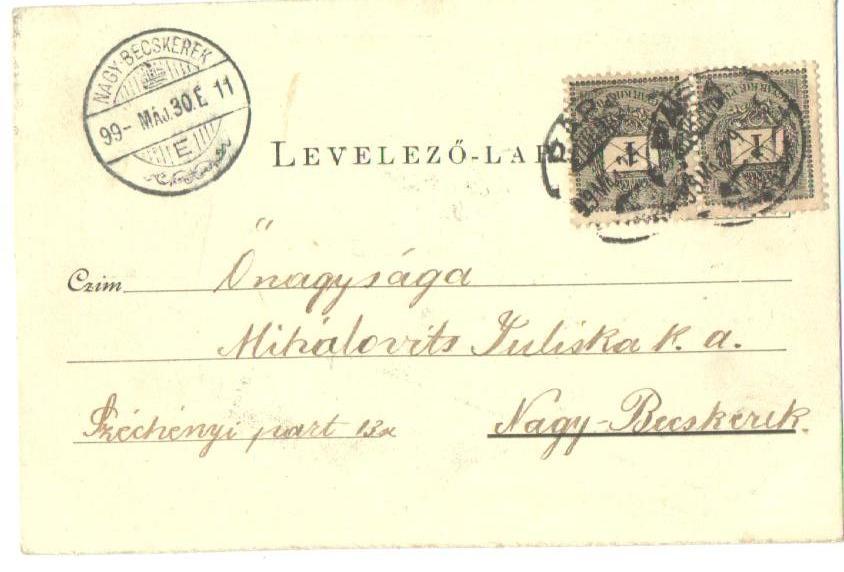 NAGY-BECSKEREK
99- MÁJ.30.É 11
E
LEVELEZŐ-LAP
1
1
Czim Őnagysága
Mihálovits Juliska k. a.
Széchényi part 13a
Nagy-Becskerek.